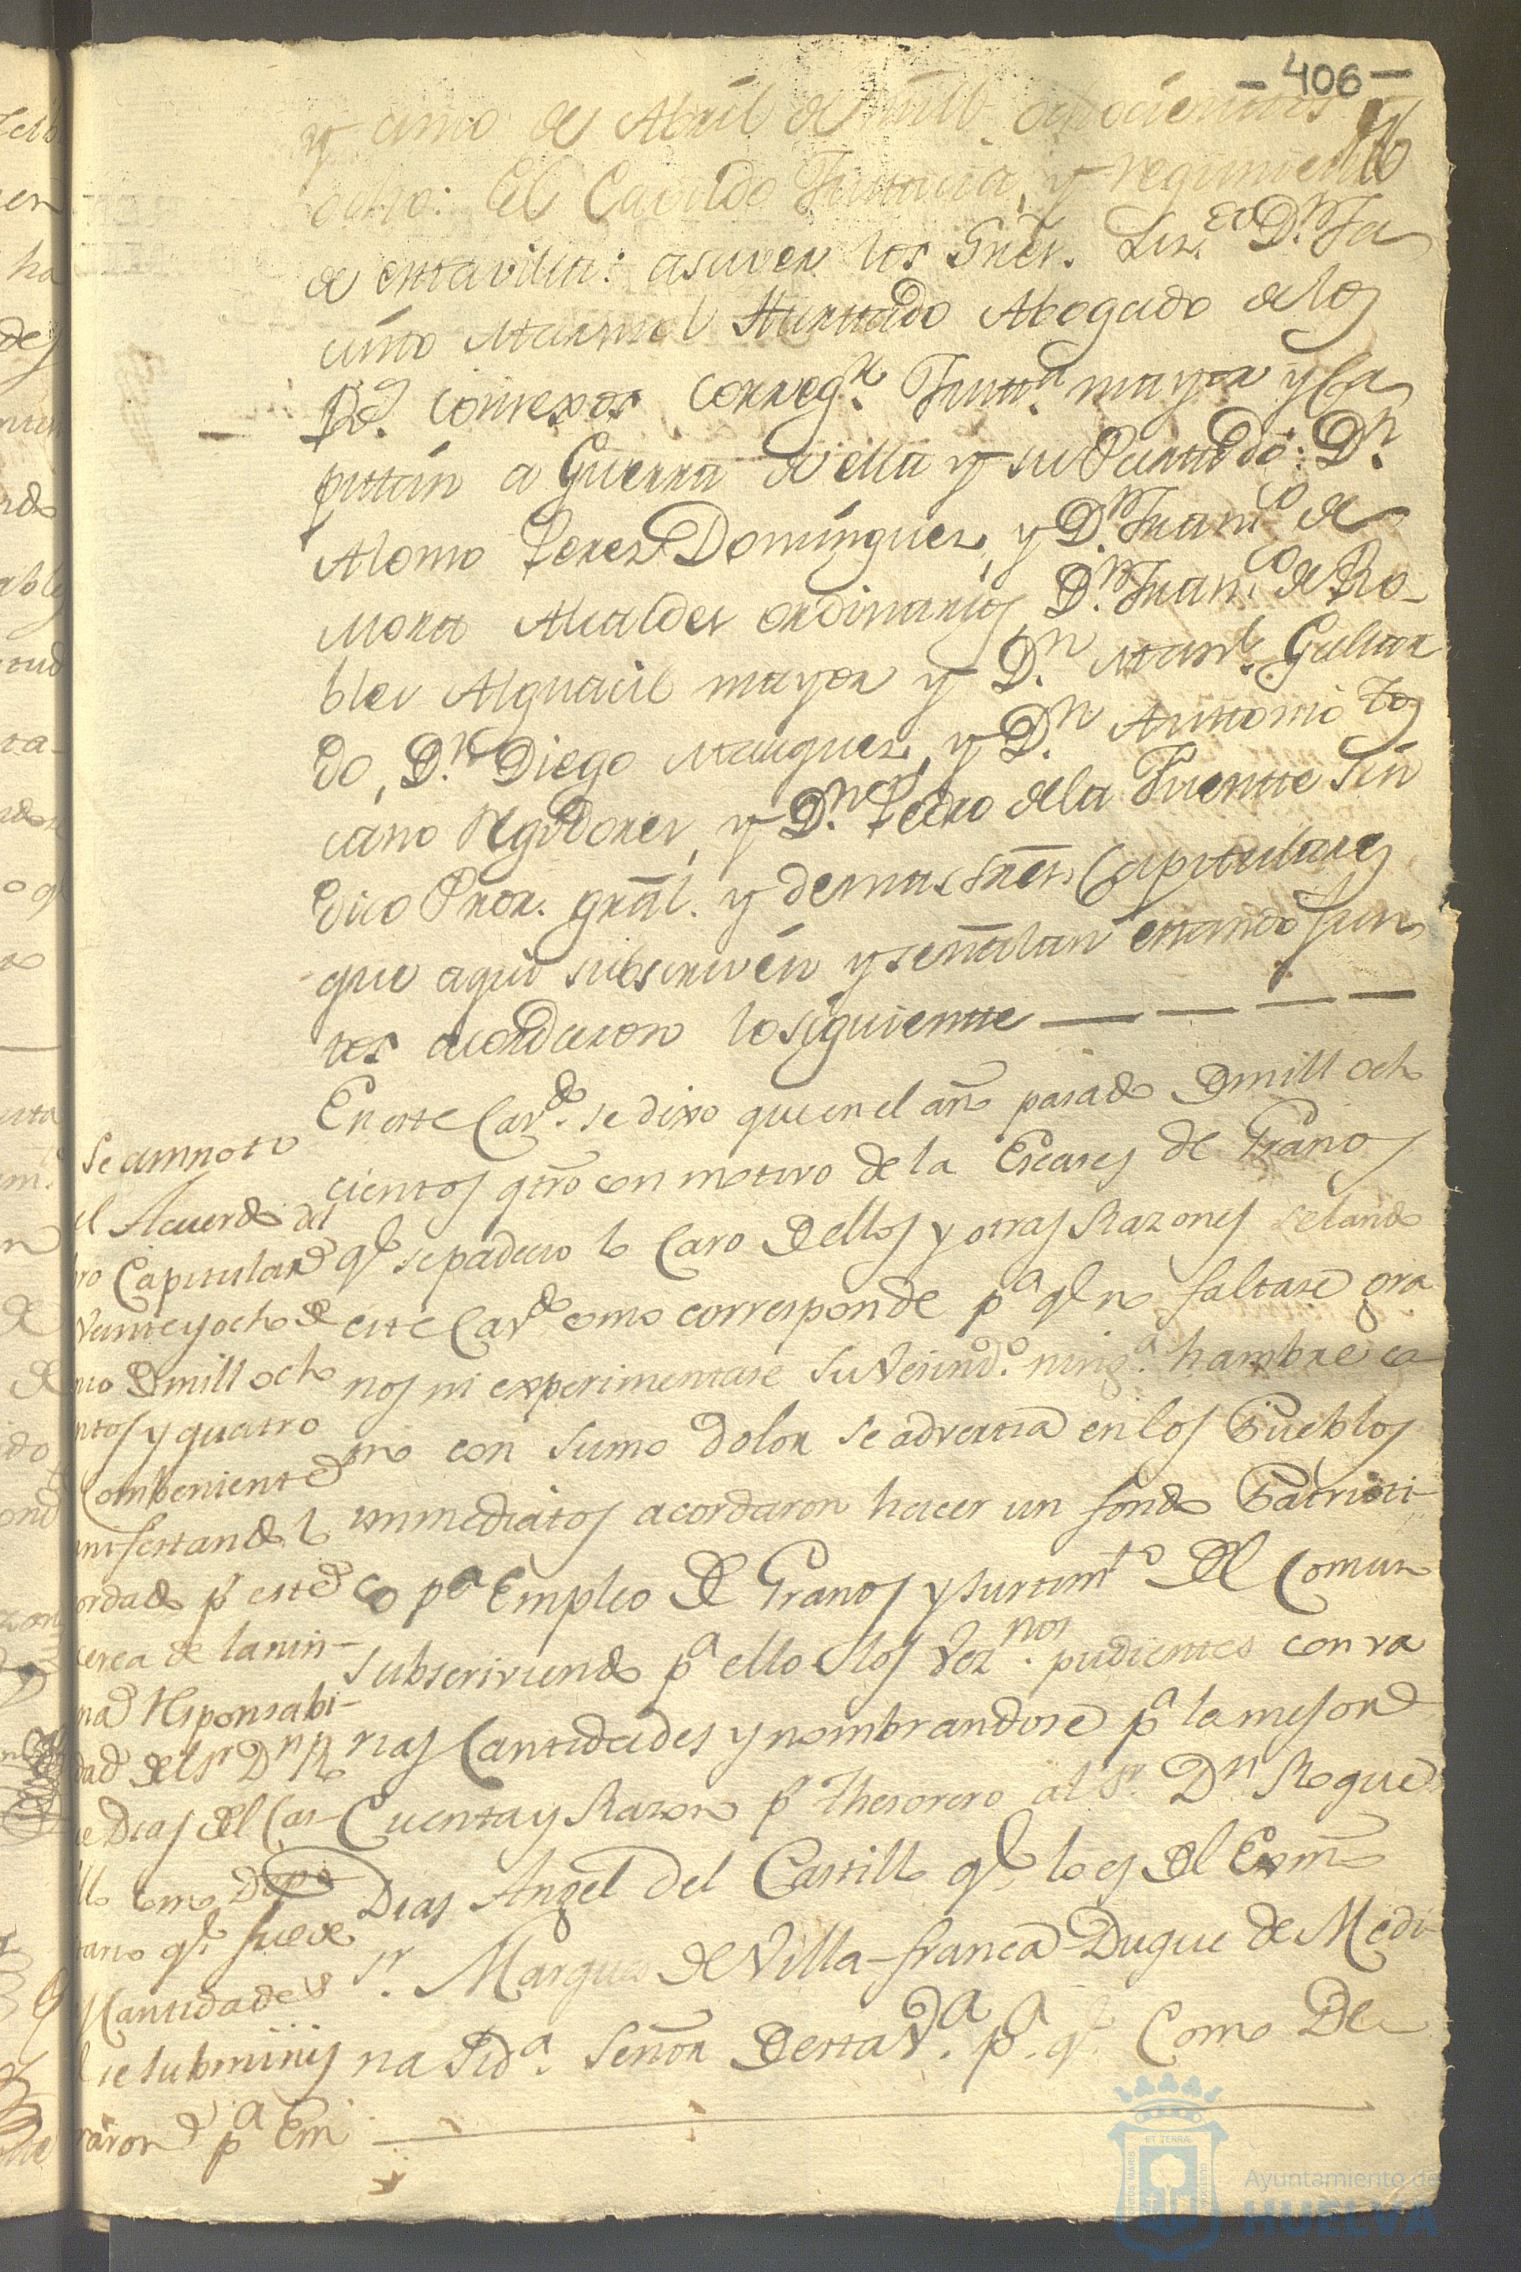 - 406 -
y cinco de Abril de mill ochocientos
ocho: El Cavildo Justicia, y regimiento
de esta villa: asaver los Sres. Liz.do D.n Ja
cinto Marmol Hurtado Abogado de los
R.s Consexos Correg.r Justt.a mayor y Ca
pitán a Guerra de ella y su Partido: D.n
Alonso Perez Domínguez, y D.n Fran.co de
Mora Alcaldes ordinarios D.n Fran.co de Ro-
bles Alguacil mayor y D.n Man.l Gallar
do, D.n Diego Marquez, y D.n Anttonio Tos
cano Regidores, y D.n Pedro de la Fuentte Sin
dico Pror. gral. y demas Sres. Capitulares
que aqui subscriven y señalan estando Jun
tos acordaron lo siguientte
En este Cav.do se dixo que en el año pasado de mill ocho
cientos qtro con motivo de la Escases de Granos
q.e se padecio lo Caro de ellos y otras Razones selando
este Cav.do como corresponde p.a q.e no faltase gra
nos ni experimentase su Vecind.o ning.a hambre co
mo con sumo dolor se advertia en los Pueblos
immediatos acordaron hacer un fondo Patrioti-
co p.a Empleo de Granos y surtim.to del Comun
subscriviendo p.a ello los Vez.nos pudientes con va
rias Cantidades y nombrandose p.a la mejor
Cuenta y Razon p.r Thesorero al S.r D.n Roque
Dias Angel del Castillo q.e lo es del Exmo
S.r Marques de Villa-franca Duque de Medi-
na Sid.a Señor de esta V.a p.a q.e Como De
Se annoto
el Acuerdo del
ro Capitular de
Veinte y ocho de
nio de mill ocho
ntos y quatro
Combeniente
nifestando lo
ordado p.r este
cerca de la nin-
na Responsabi-
dad del S.r D.n R
ue Dias del Cas-
llo como Depo
tario q.e fue de
s Cantidades
l se subminis
raron p.a Em
Ayuntamiento de
HUELVA